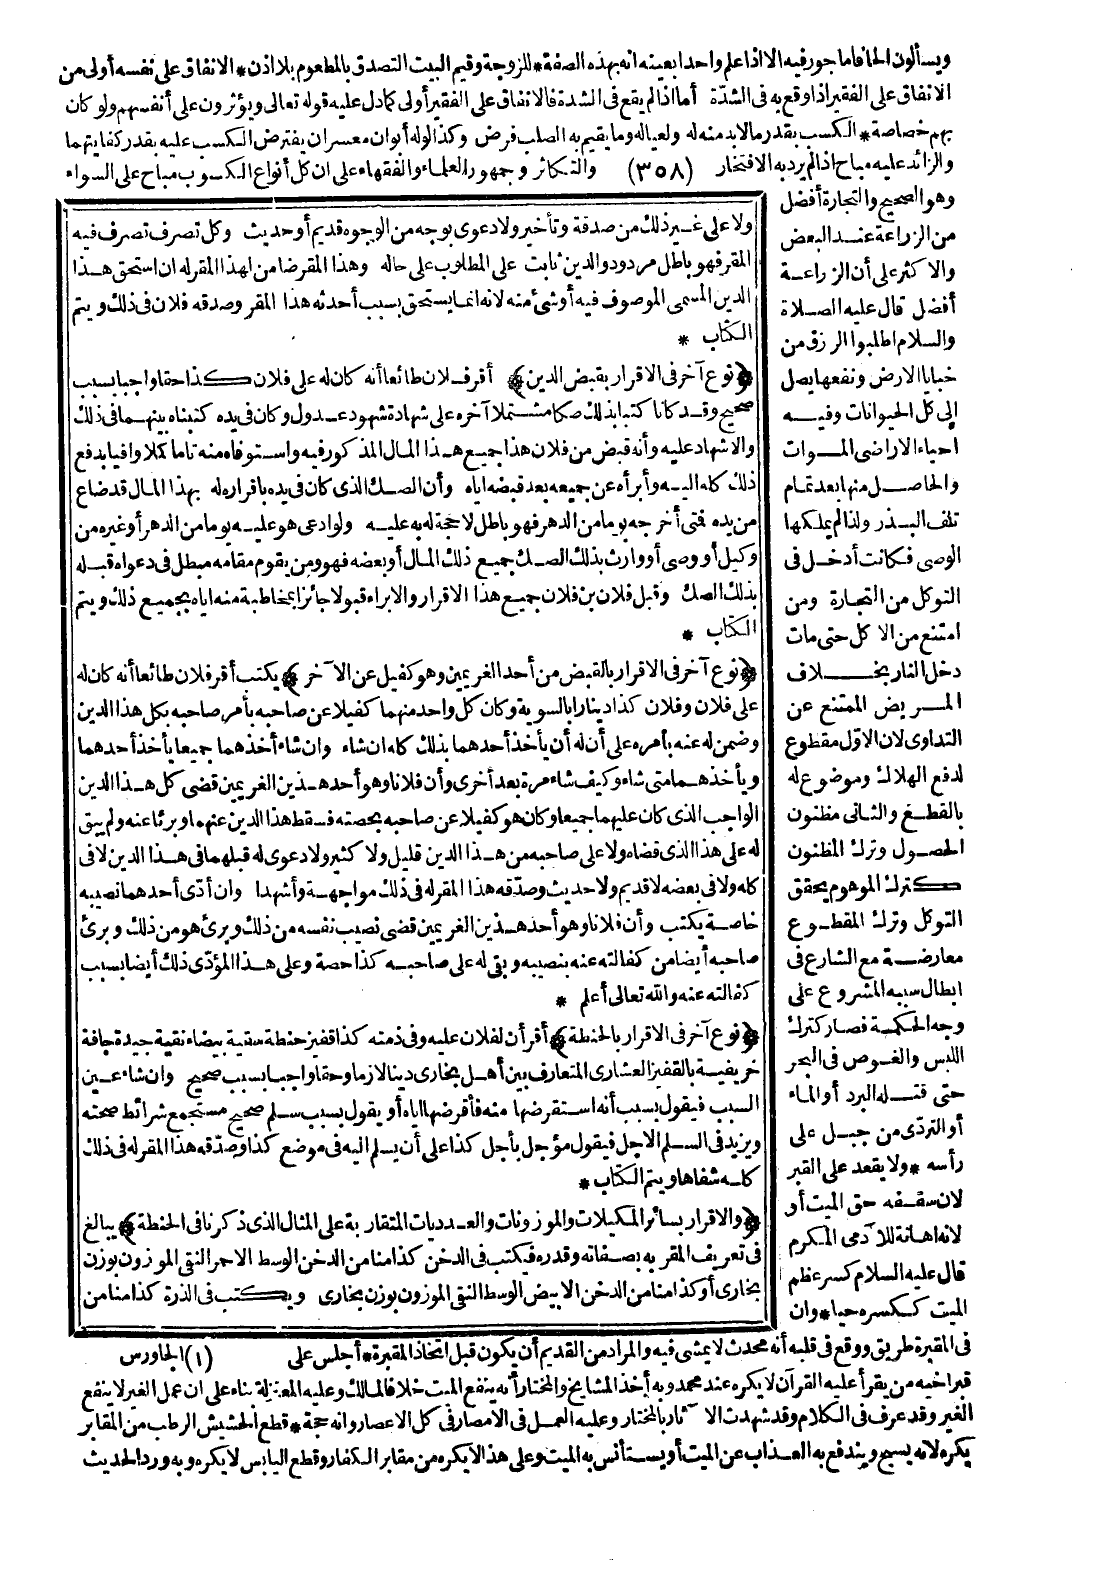 ويسألون الحافا مأجور فيه الا اذا علم واحدا بعينه انه بهذه الصفة * للزوجة وقيم البيت التصدق بالمطعوم بلا اذن * الانفاق على نفسه أولى من
الانفاق على الفقير اذا وقع به فى الشدّة أما اذا لم يقع فى الشدة فالانفاق على الفقير أولى كما دل عليه قوله تعالى ويؤثرون على أنفسهم ولو كان
بهم خصاصة * الكسب بقدر مالا بد منه له ولعياله وما يقيم به الصلب فرض وكذا لو له أبوان معسران يفترض الكسب عليه بقدر كفايتهما
والزائد عليه مباح اذا لم يرد به الافتخار (٣٥٨) والتكاثر وجمهور العلماء والفقهاء على ان كل أنواع الكسوب مباح على السواء
وهو الصحيح والتجارة أفضل
من الزراعة عند البعض
والاكثر على أن الزراعة
أفضل قال عليه الصلاة
والسلام اطلبوا الرزق من
خبايا الارض ونفعها يصل
إلى كل الحيوانات وفيه
احياء الاراضى الموات
والحاصل منها بعد تمام
تلف البذر ولذا لم يملكها
الوصى فكانت أدخل فى
التوكل من التجارة ومن
امتنع من الاكل حتى مات
دخل النار بخلاف
المريض الممتنع عن
التداوى لان الاوّل مقطوع
لدفع الهلاك وموضوع له
بالقطع والثانى مظنون
الحصول وترك المظنون
كترك الموهوم يحقق
التوكل وترك المقطوع
معارضة مع الشارع فى
ابطال سببه المشروع على
وجه الحكمة فصار كترك
اللبس والغوص فى البحر
حتى قتله البرد أو الماء
أو التردّى من جبل على
رأسه * ولا يقعد على القبر
لان سقفه حق الميت أو
لانه اهانة للآدمى المكرم
قال عليه السلام كسر عظم
الميت ككسره حيا * وان
ولا على غير ذلك من صدقة وتأخير ولا دعوى بوجه من الوجوه قديم أو حديث وكل تصرف تصرف فيه
المقر فهو باطل مردود والدين ثابت على المطلوب على حاله وهذا المقر ضامن لهذا المقر له ان استحق هذا
الدين المسمى الموصوف فيه أو شئ منه لانه انما يستحق بسبب أحدثه هذا المقر وصدقه فلان فى ذلك ويتم
الكتاب *
﴿نوع آخر فى الاقرار بقبض الدين﴾ أقر فلان طائعا أنه كان له على فلان كذا حقا واجبا بسبب
صحيح وقد كانا كتبا بذلك صكا مشتملا آخره على شهادة شهود عدول وكان فى يده كتبناه بينهما فى ذلك
والاشهاد عليه وأنه قبض من فلان هذا جميع هذا المال المذكور فيه واستوفاه منه تاما كملا وافيا بدفع
ذلك كله اليه وأبرأه عن جميعه بعد قبضه اياه وأن الصك الذى كان فى يده باقراره له بهذا المال قد ضاع
من يده فمتى أخرجه يوما من الدهر فهو باطل لا حجة له به عليه ولو ادعى هو عليه يوما من الدهر أو غيره من
وكيل أو وصى أو وارث بذلك الصك جميع ذلك المال أو بعضه فهو ومن يقوم مقامه مبطل فى دعواه قبله
بذلك الصك وقبل فلان بن فلان جميع هذا الاقرار والابراء قبولا جائزا بمخاطبة منه اياه بجميع ذلك ويتم
الكتاب *
﴿نوع آخر فى الاقرار بالقبض من أحد الغريمين وهو كفيل عن الآخر﴾ يكتب أقر فلان طائعا أنه كان له
على فلان وفلان كذا دينارا بالسوية وكان كل واحد منهما كفيلا عن صاحبه بأمر صاحبه بكل هذا الدين
وضمن له عنه بأمره على أن له أن يأخذ أحدهما بذلك كله ان شاء وان شاء أخذهما جميعا يأخذ أحدهما
ويأخذهما متى شاء وكيف شاء مرة بعد أخرى وأن فلانا وهو أحد هذين الغريمين قضى كل هذا الدين
الواجب الذى كان عليهما جميعا وكان هو كفيلا عن صاحبه بحصته فسقط هذا الدين عنهما وبرئا عنه ولم يبق
له على هذا الذى قضاه ولا على صاحبه من هذا الدين قليل ولا كثير ولا دعوى له قبلهما فى هذا الدين لا فى
كله ولا فى بعضه لا قديم ولا حديث وصدّقه هذا المقر له فى ذلك مواجهة وأشهدا وان أدّى أحدهما نصيبه
خاصة يكتب وأن فلانا وهو أحد هذين الغريمين قضى نصيب نفسه من ذلك وبرئ هو من ذلك وبرئ
صاحبه أيضا من كفالته عنه بنصيبه وبقى له على صاحبه كذا حصة وعلى هذا المؤدّى ذلك أيضا بسبب
كفالته عنه والله تعالى أعلم *
﴿نوع آخر فى الاقرار بالحنطة﴾ أقر أن لفلان عليه وفى ذمته كذا قفيز حنطة سقية بيضاء نقية جيدة جافة
خريفية بالقفيز العشارى المتعارف بين أهل بخارى دينا لازما وحقا واجبا بسبب صحيح وان شاء عين
السبب فيقول بسبب أنه استقرضها منه فأقرضها اياه أو يقول بسبب سلم صحيح مستجمع شرائط صحته
ويزيد فى السلم الاجل فيقول مؤجل بأجل كذا على أن يسلم اليه فى موضع كذا وصدّقه هذا المقر له فى ذلك
كله شفاها ويتم الكتاب *
﴿والاقرار بسائر المكيلات والموزونات والعدديات المتقاربة على المثال الذى ذكرنا فى الحنطة﴾ يبالغ
فى تعريف المقر به بصفاته وقدره فيكتب فى الدخن كذا منا من الدخن الوسط الاحمر النقى الموزون بوزن
بخارى أو كذا منا من الدخن الابيض الوسط النقى الموزون بوزن بخارى ويكتب فى الذرة كذا منا من
فى المقبرة طريق ووقع فى قلبه أنه محدث لا يمشى فيه والمراد من القديم أن يكون قبل اتخاذ المقبرة * أجلس على (١) الجاورس
قبر اخيه من يقرأ عليه القرآن لا يكره عند محمد وبه أخذ المشايخ والمختار أنه ينفع الميت خلافا لمالك وعليه المعتزلة بناء على ان عمل الغير لا ينفع
الغير وقد عرف فى الكلام وقد شهدت الآثار بالمختار وعليه العمل فى الامصار فى كل الاعصار وانه حجة * قطع الحشيش الرطب من المقابر
يكره لانه يسبح ويندفع به العذاب عن الميت أو يستأنس به الميت وعلى هذا لا يكره من مقابر الكفار وقطع اليابس لا يكره وبه ورد الحديث